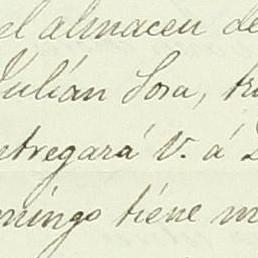 el almacen de
Julián Sosa, tr
ntregará V. á D
omingo tiene m